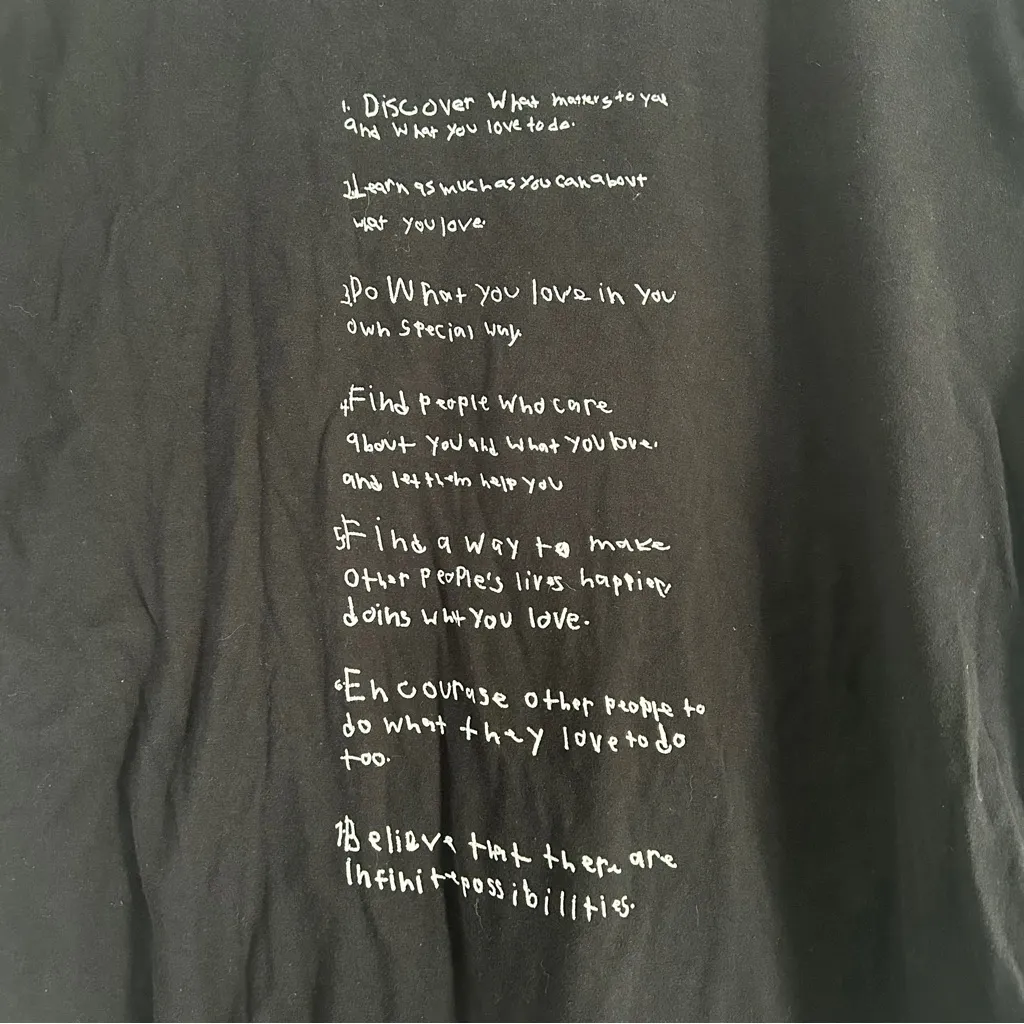 1. Discover What matters to you
and What you love to do.
2. Learn as much as you can about
what you love.
3. Do What you love in you
own special way.
4. Find people who care
about you and what you love.
and let them help you
5. Find a way to make
Other People's lives happier,
doing what you love.
6. Encourage other people to
do what they love to do
too.
7. Believe that there are
Infinite possibilities.